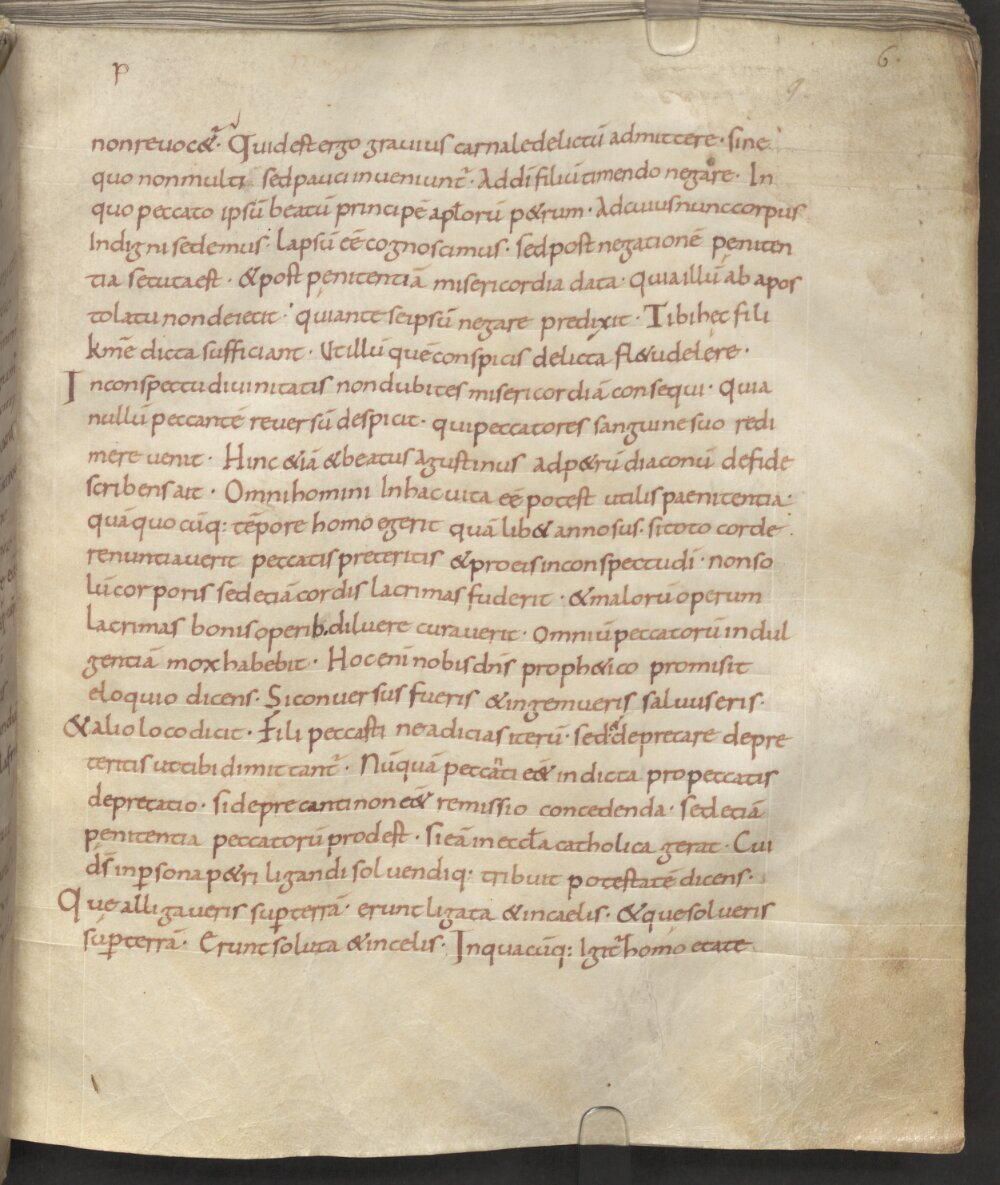 p
6
9
non reuoc&ur. Quid est ergo grauius carnale delictū admittere. sine
quo non multi sed pauci inueniunt̄. Aut dī filiū timendo negare. In
quo peccato ipsū beatū principē apłorū p&rum. Ad cuius nunc corpus
Indigni sedemus. lapsū eē cognoscimus. sed post negationē peniten
tia secuta est. & post penitentiā misericordia data. Quia illū ab apos
tolatu non deiecit. qui ante se ipsū negare predixit. Tibi hęc fili
kmē dicta sufficiant. Ut illū quē conspicis delicta fl&u delere.
In conspectu diuinitatis non dubites misericordiā consequi. Quia
nullū peccantē reuersū despicit. qui peccatores sanguine suo redi
mere uenit. Hinc &iā & beatus agustinus ad p&rū diaconū de fide
scribens ait. Omni homini In hac uita eē potest utilis paenitentia.
quā quocūq: tēpore homo egerit quā lib& annosus. si toto corde.
renuntiauerit peccatis preteritis & pro eis in conspectu di. non so
lū corporis sed etiā cordis lacrimas fuderit. & malorū operum
lacrimas bonis operib. diluere curauerit. Omniū peccatorū indul
gentiā mox habebit. Hoc enī nobis dn̄s proph&ico promisit
eloquio dicens. Si conuersus fueris & ingemueris saluus eris.
& alio loco dicit. Fili peccasti ne adicias iterū. sed & deprecare de pre
teritis ut tibi dimittant̄. Nūquā peccanti e& indicta pro peccatis
deprecatio. si deprecanti non e& remissio concedenda. sed etiā
penitentia peccatorū prodest. si eā in eccła catholica gerat. Cui
dš in ꝑsona p&ri ligandi soluendiq: tribuit potestatē dicens.
Que alligaueris suꝑ terrā. erunt ligata & in caelis. & que solueris
suꝑ terrā. Erunt soluta & in celis. In quacūq: Igit̄ homo etate